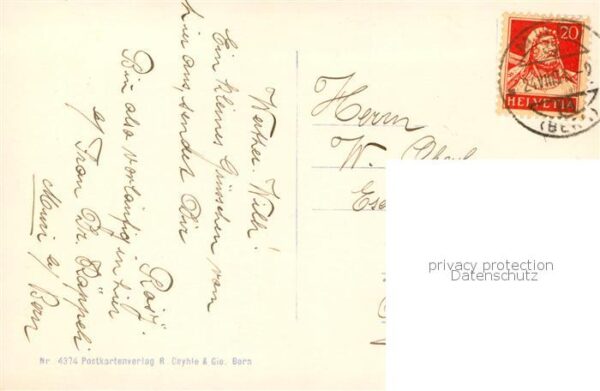 Werther Willi!
Ein kleines Grüsschen von
hier aus, sendet Dir
Rosj.
Bin also vorläufig in hier
a/ Frau Dr. Käppeli
Muri a/ Bern
Herrn
W.
20
HELVETIA
(BERN)
privacy protection
Datenschutz
Nr 4374 Postkartenverlag R. Deyhle & Cie. Bern